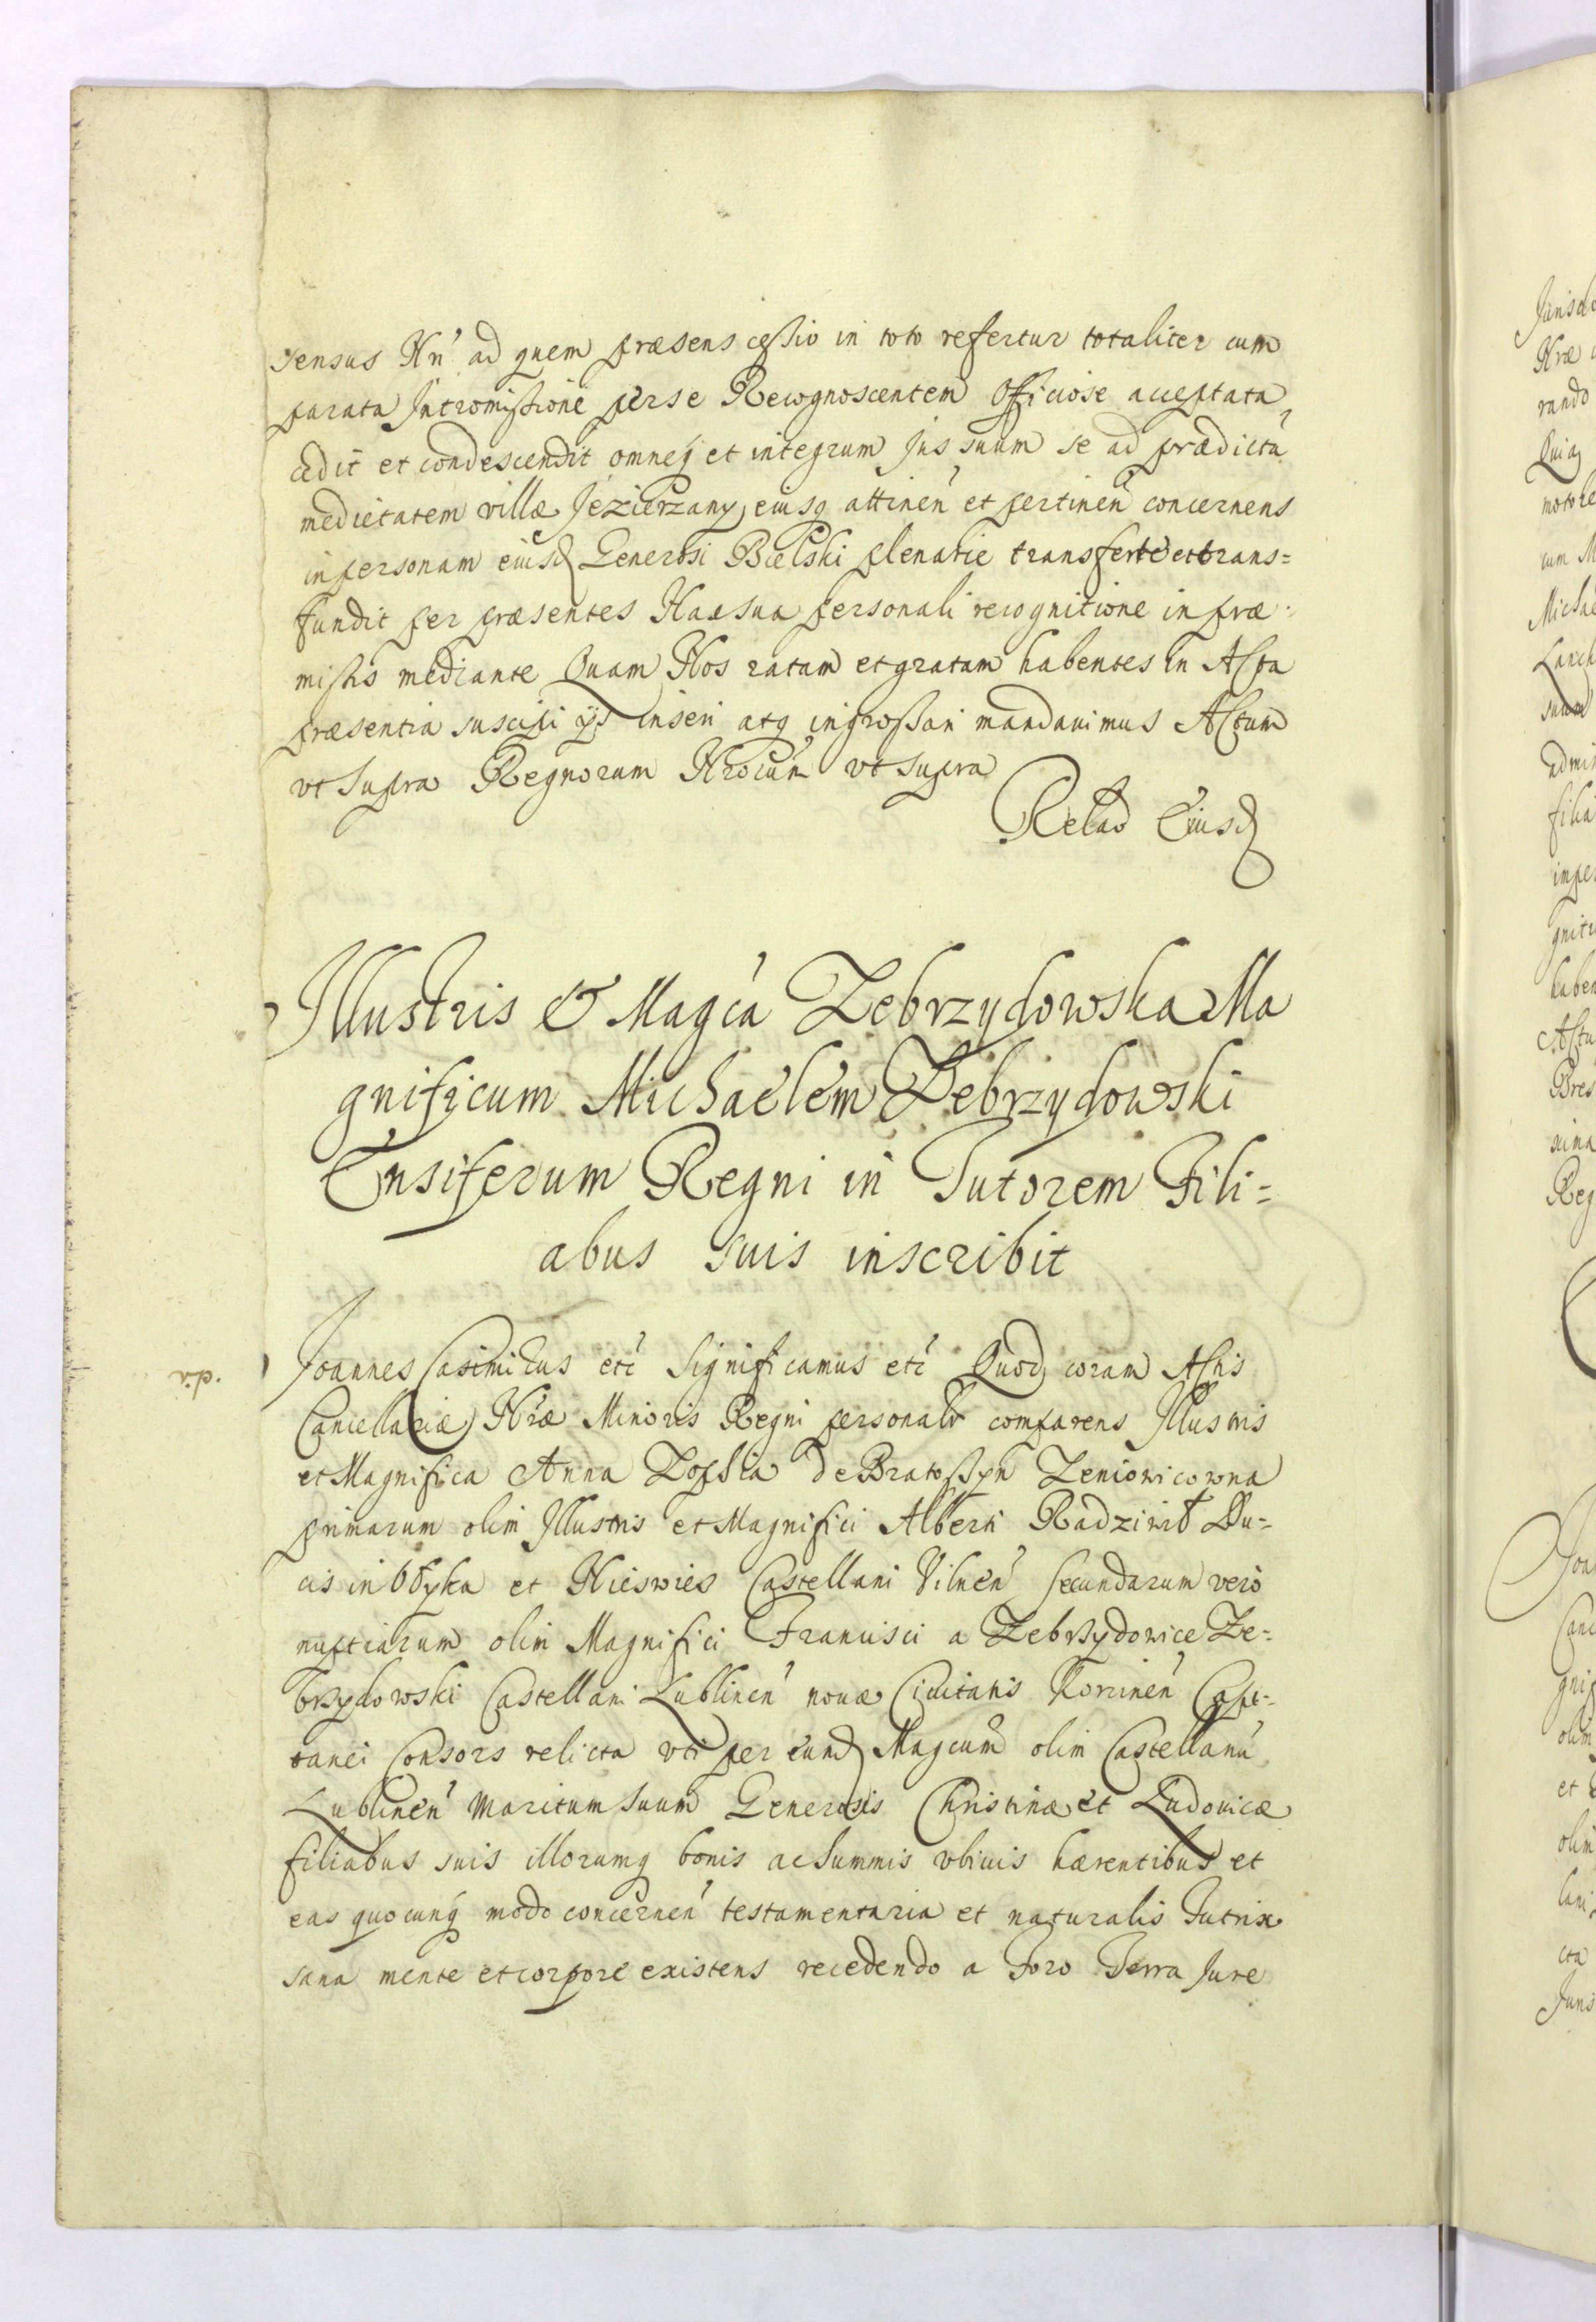 sensus Nri ad quem præsens cessio in toto refertur totaliter cum
parata Intromissione per se Recognoscentem officiose acceptata
cedit et condescendit omneq et integrum Jus suum se ad prædictã
medietatem villæ Jezierzany eiusq attinen et pertinen concernens
in personam eiusd Generosi Bielski plenarie transfert et trans=
fundit per præsentes Hac sua personali recognitione in præ
missis mediante Quam Nos ratam et gratam habentes in Acta
præsentia suscipi ijs inseri atq ingrossari mandauimus Actum
vt supra Regnorum Nrorum vt supra
Relao Eiusd
Illustris & Magca Zebrzydowska Ma
gnificum Michaelem Zebrzydowski
Ensiferum Regni in Tutorem Fili=
abus suis inscribit
Joannes Casimirus etc Significamus etc Quod coram Actis
Cancellariæ Nræ Minoris Regni personalr comparens Illustris
et Magnifica Anna Zophia de Bratoszyn Zeniowicowna
primarum olim Illustris et Magnifici Alberti Radziwił Du=
cis in Ołyka et Nieswies Castellani Vilnen secundarum vero
nuptiarum olim Magnifici Francisci a Zebrzydowice Ze=
brzydowski Castellani Lublinen nouæ Ciuitatis Korcinen Capi=
tanei Consors relicta vti per eund Magcum olim Castellanũ
Lublinen Maritum suum Generosis Christinæ et Ludouicæ
filiabus suis illorumq bonis ac summis vbiuis hærentibus et
eas quocunq modo concernen testamentaria et naturalis Tutrix
sana mente et corpore existens recedendo a Foro Terra Jure